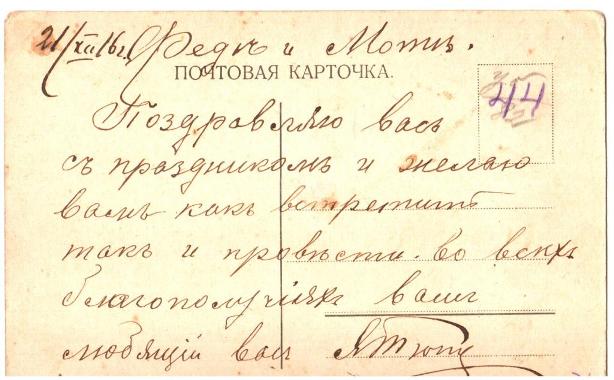 21/XII 16 г. Федѣ и Мотѣ.
ПОЧТОВАЯ КАРТОЧКА.
44
Поздравляю васъ
съ праздникомъ и желаю
вамъ какъ встретить
такъ и провѣсти во всѣхъ
благополучіяхъ вашъ
любящій васъ